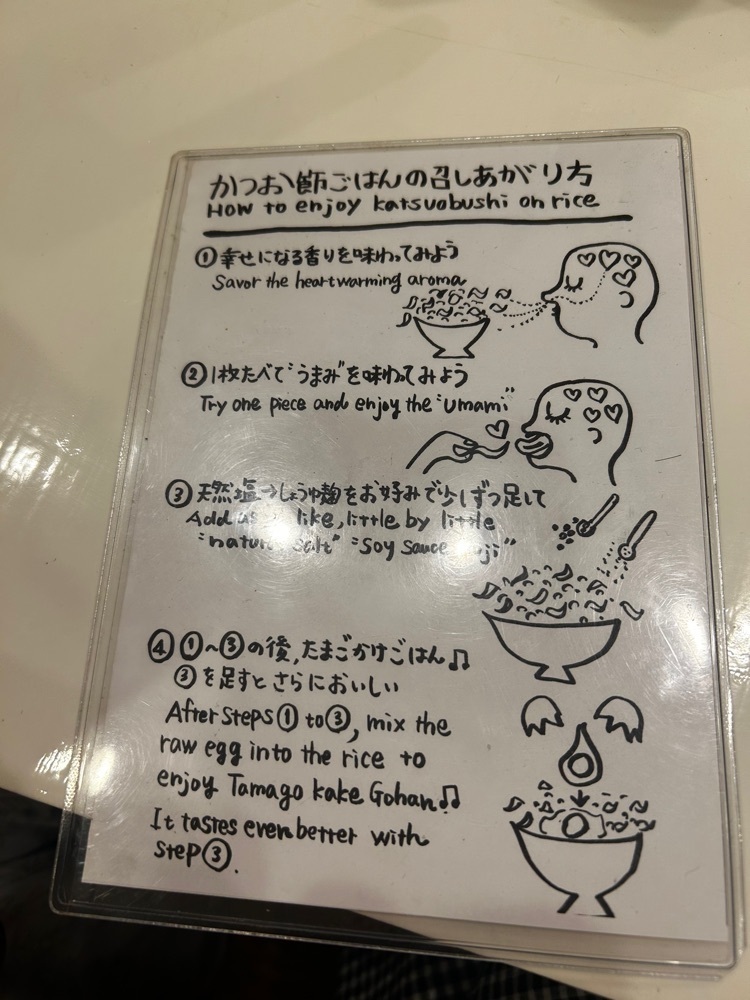 かつお節ごはんの召しあがり方
How to enjoy katsuobushi on rice
① 幸せになる香りを味わってみよう
Savor the heartwarming aroma
② 1枚たべて"うまみ"を味わってみよう
Try one piece and enjoy the "Umami"
③ 天然塩→しょうゆ麹をお好みで少しずつ足して
Add as like, little by little
"natural salt" "Soy sauce koji"
④ ①〜③の後,たまごかけごはん♫
③を足すとさらにおいしい
After steps ① to ③, mix the
raw egg into the rice to
enjoy Tamago kake Gohan♫
It tastes even better with
step ③.